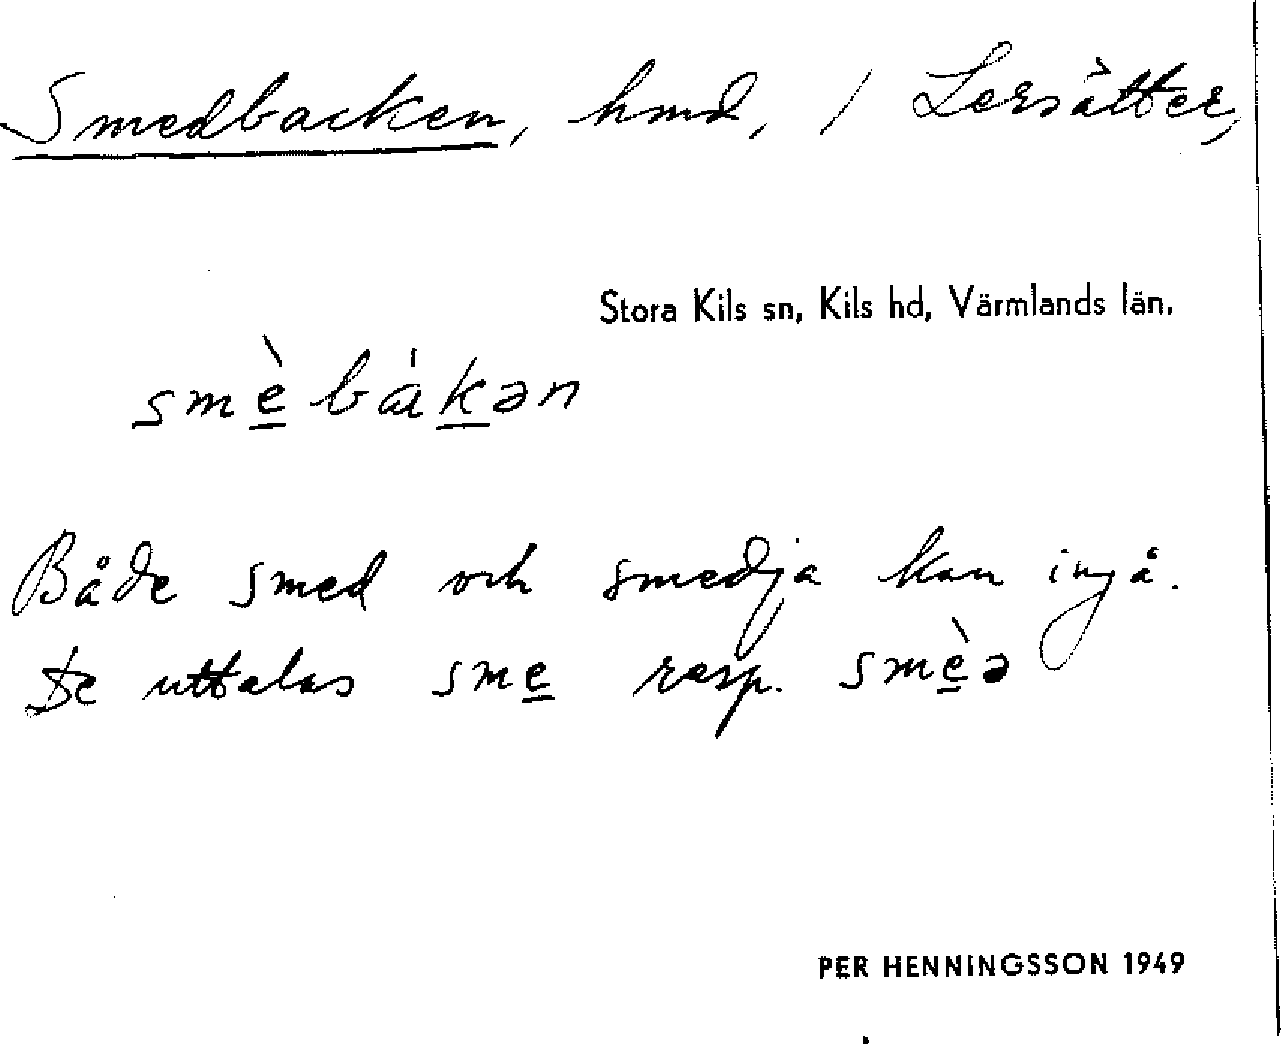 Smedbacken, hmd, / Lersätter,
Stora Kils sn, Kils hd, Värmlands län.
smè̱bàḵən
Både smed och smedja kan ingå.
De uttalas sme̱ resp. smè̱ə
PER HENNINGSSON 1949